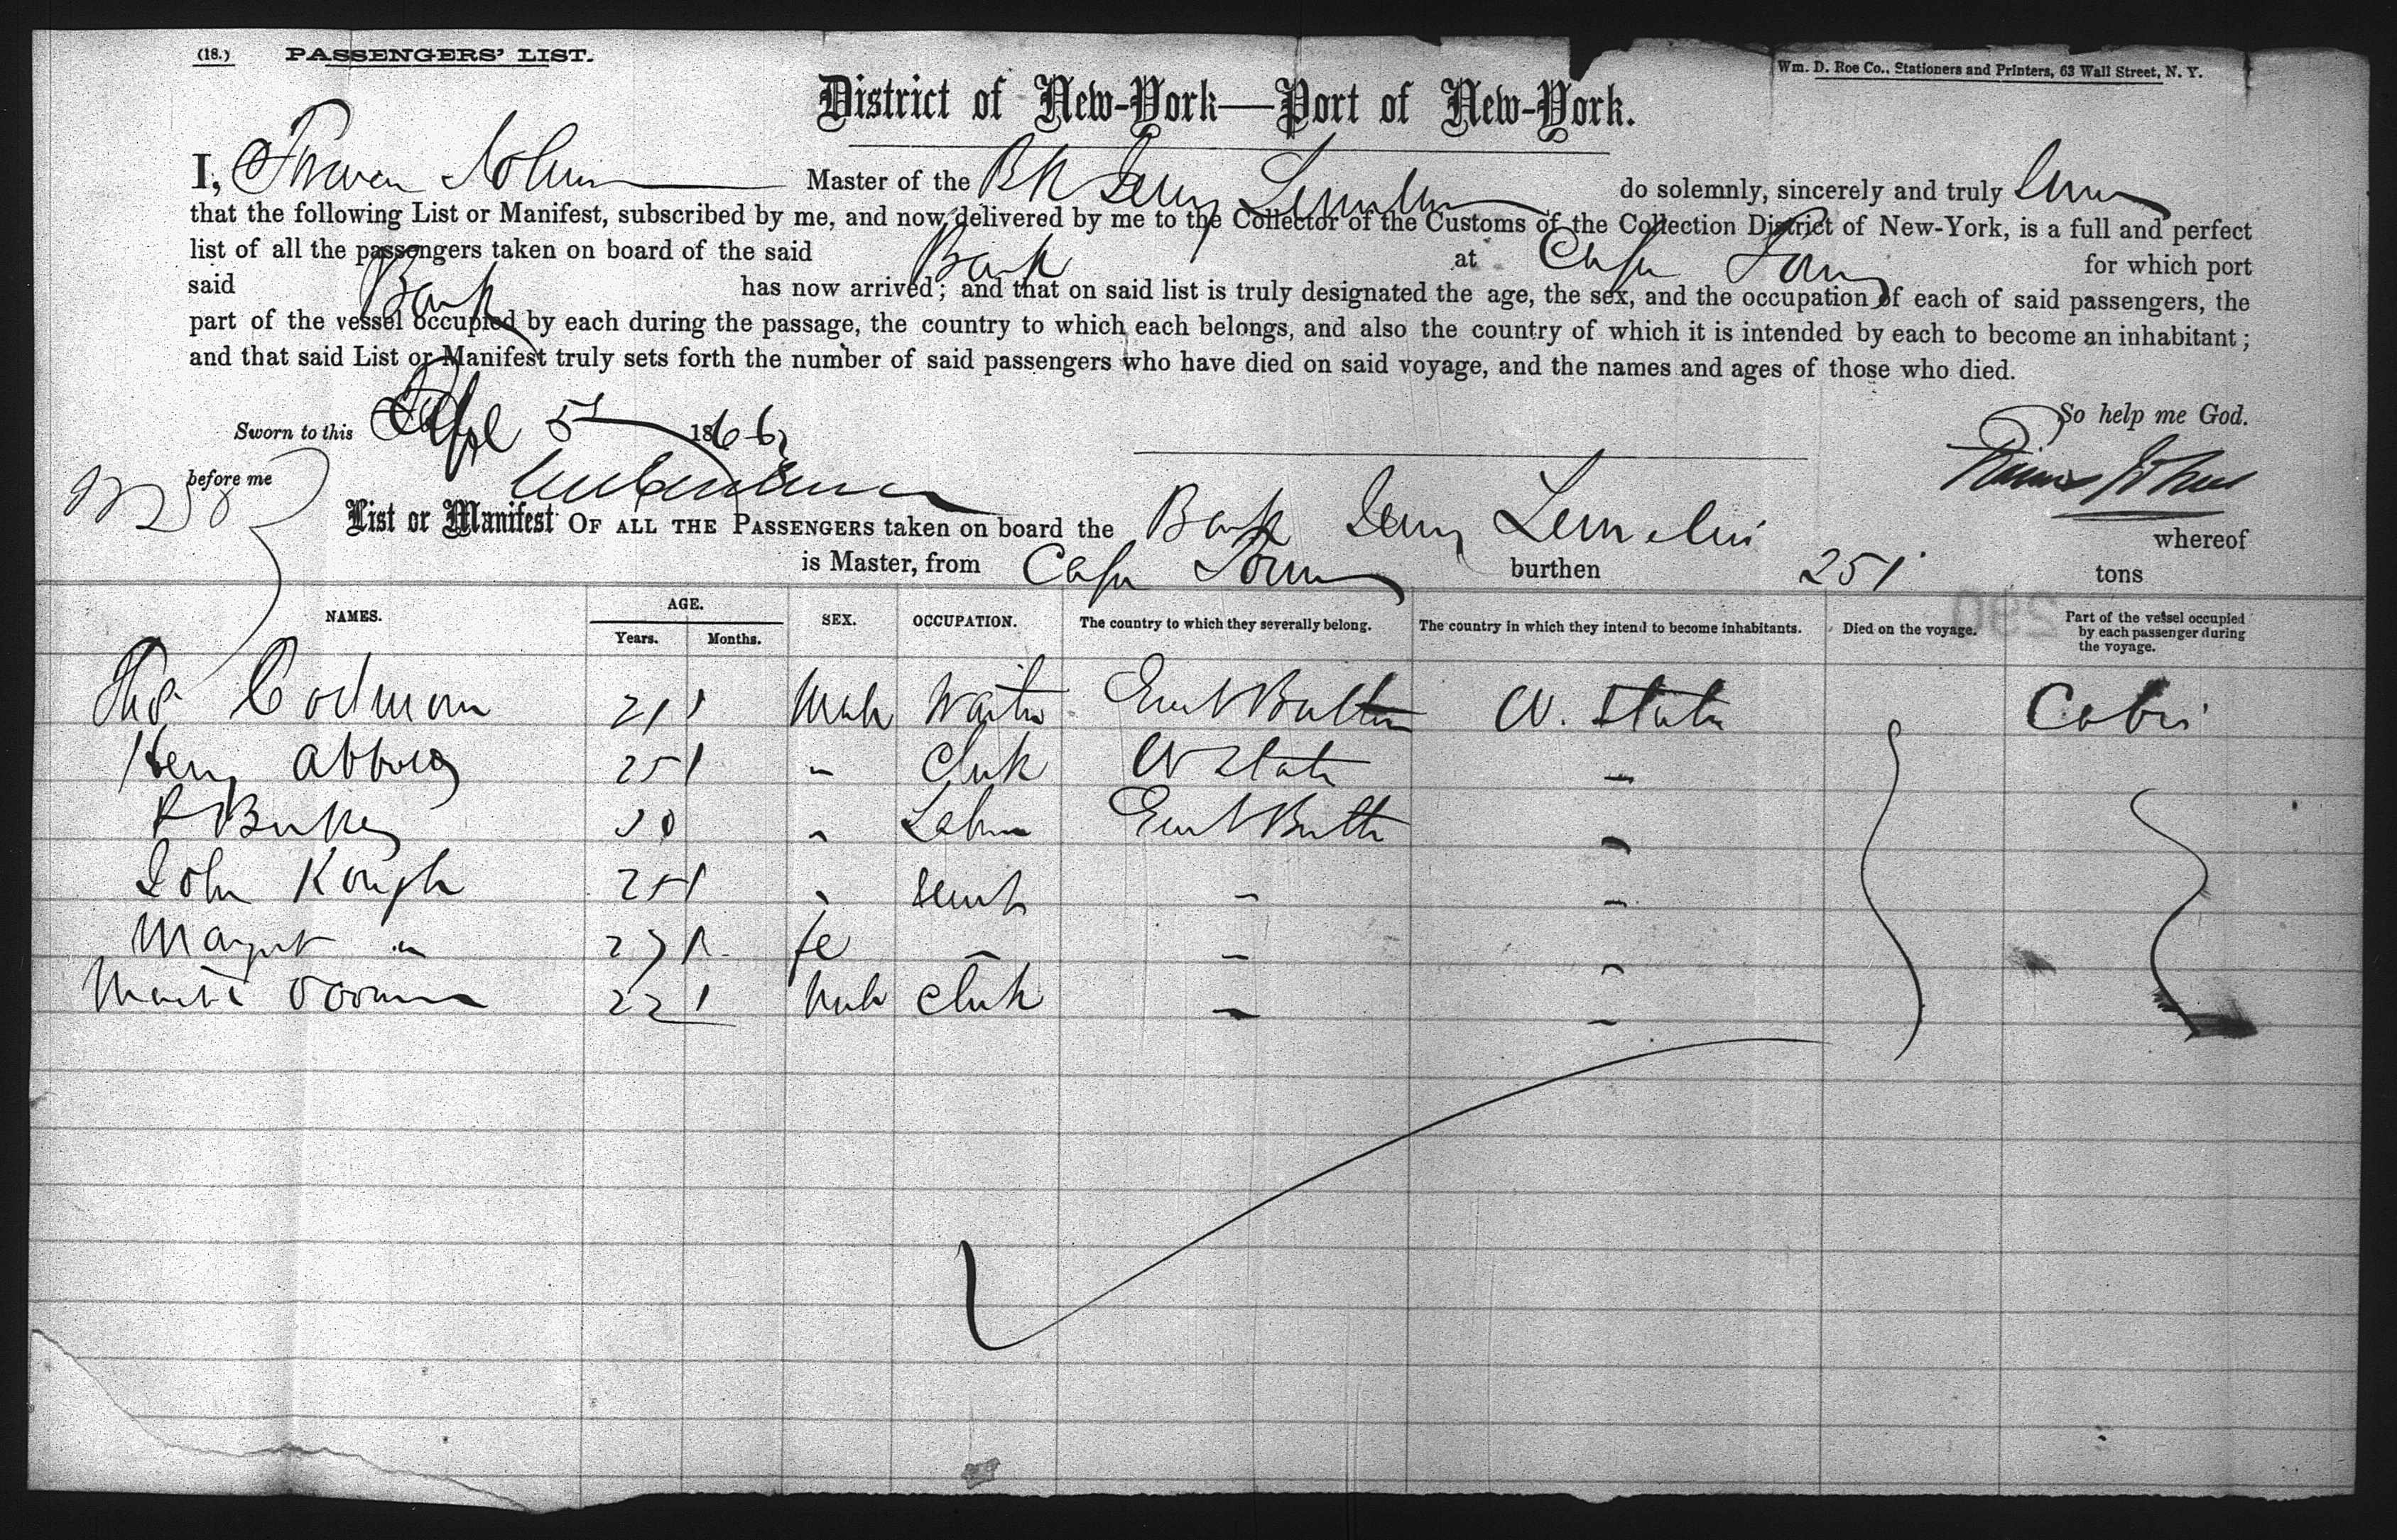 (18.) PASSENGERS' LIST.
Wm. D. Roe Co., Stationers and Printers, 63 Wall Street, N. Y.
District of New-York—Port of New-York.
I, Master of the Bk do solemnly, sincerely and truly
that the following List or Manifest, subscribed by me, and now delivered by me to the Collector of the Customs of the Collection District of New-York, is a full and perfect
list of all the passengers taken on board of the said Bark at Cape Town for which port
said Bark has now arrived; and that on said list is truly designated the age, the sex, and the occupation of each of said passengers, the
part of the vessel occupied by each during the passage, the country to which each belongs, and also the country of which it is intended by each to become an inhabitant;
and that said List or Manifest truly sets forth the number of said passengers who have died on said voyage, and the names and ages of those who died.
So help me God.
Sworn to this 5 1866
before me
List or Manifest OF ALL THE PASSENGERS taken on board the Bark whereof
is Master, from Cape Town burthen 251 tons
NAMES. AGE. Years. Months. SEX. OCCUPATION. The country to which they severally belong. The country in which they intend to become inhabitants. Died on the voyage. Part of the vessel occupied by each passenger during the voyage.
Thos Codman 21 Male Waiter Great Britain U. States Cabin
Henry 25 " Clerk U States "
R 30 " Labor Great Britn "
John Kough 25 " " "
Margret " 27 fe " " "
22 Male Clerk " "
290